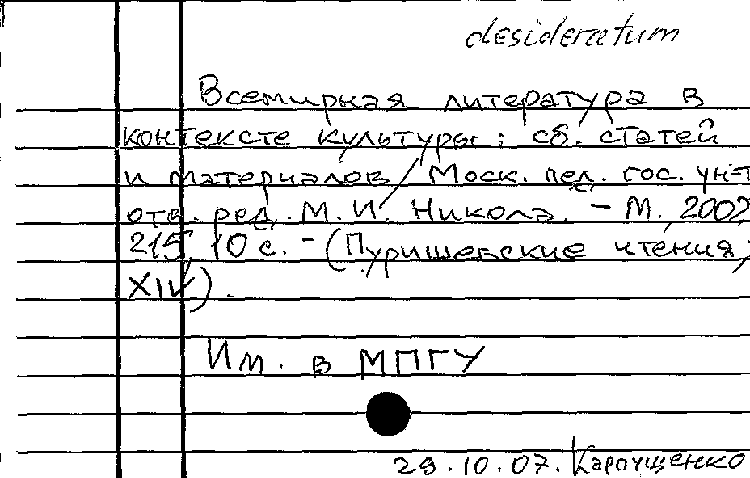 desideratum
Всемирная литература в
контексте культуры: сб. статей
и материалов / Моск. пед. гос. ун-т
отв. ред. М. И. Никола. - М., 2002
215, 10 с. - (Пуришевские чтения;
XIV).
Им. в МПГУ
29.10.07. Карпущенко